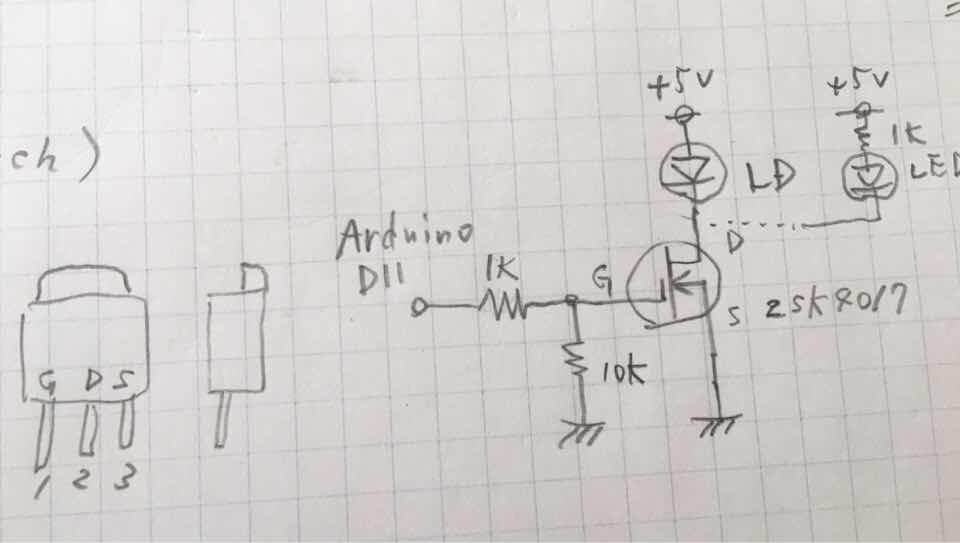 ch)
+5V
+5V
1K
LD
LED
Arduino
D11
1K
G
D
S
2SK4017
10K
G D S
1 2 3